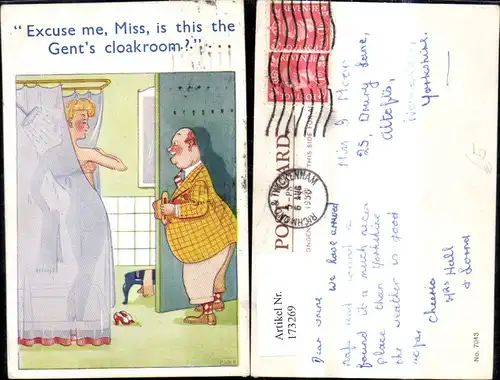 "Excuse me, Miss, is this the
Gent's cloakroom?"
POST CARD
THIS SIDE
RICHMOND & TWICKENHAM
6 AUG
1956
REVENUE
Miss J
25, Drury Lane,
Altofts,
Yorkshire.
Dear
we have arrived
safe and sound &
found it a much nicer
place than Yorkshire
the weather is good
so far Cheerio
Mrs Hall
& Lorna
No. 7043
Artikel Nr.
173269